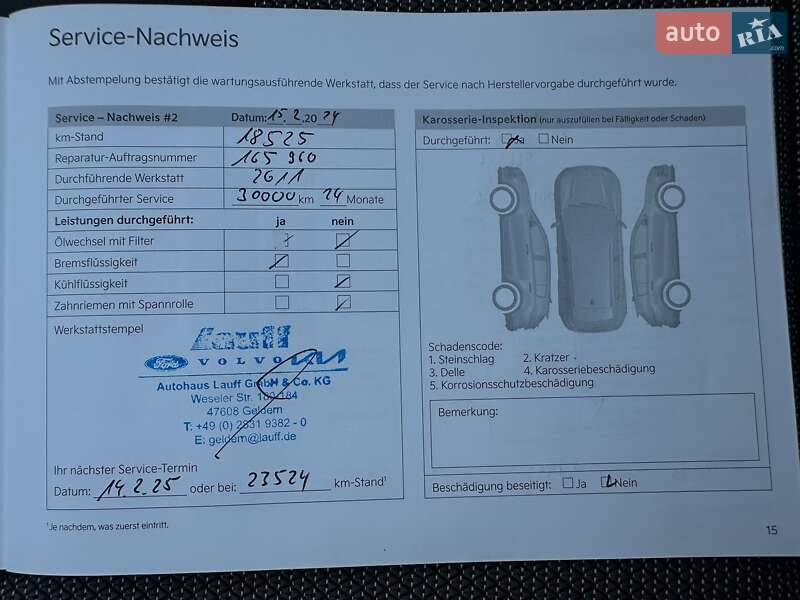 auto RIA.com
Service-Nachweis
Mit Abstempelung bestätigt die wartungsausführende Werkstatt, dass der Service nach Herstellervorgabe durchgeführt wurde.
Service – Nachweis #2 Datum: 15.2.2024
km-Stand 18525
Reparatur-Auftragsnummer 165 960
Durchführende Werkstatt 2611
Durchgeführter Service 30000 km 24 Monate
Leistungen durchgeführt: ja nein
Ölwechsel mit Filter
Bremsflüssigkeit
Kühlflüssigkeit
Zahnriemen mit Spannrolle
Werkstattstempel
Lauff
Ford VOLVO KIA
Autohaus Lauff GmbH & Co. KG
Weseler Str. 180-184
47608 Geldern
T: +49 (0) 2831 9382 - 0
E: geldern@lauff.de
Ihr nächster Service-Termin
Datum: 14.2.25 oder bei: 23524 km-Stand¹
¹Je nachdem, was zuerst eintritt.
Karosserie-Inspektion (nur auszufüllen bei Fälligkeit oder Schaden)
Durchgeführt: Ja Nein
Schadenscode:
1. Steinschlag 2. Kratzer
3. Delle 4. Karosseriebeschädigung
5. Korrosionsschutzbeschädigung
Bemerkung:
Beschädigung beseitigt: Ja Nein
15